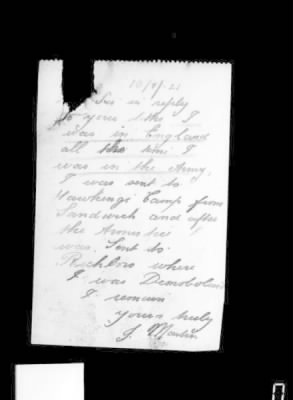 10/9/21
Sir in reply
to yours the I
was in England
all the time I
was in the Army,
I was sent to
Hawkinge Camp from
Sandwich and after
the Armistice I
was. Sent to
Richboro where
I was Demobolised
I remain
yours truly
J. Martin